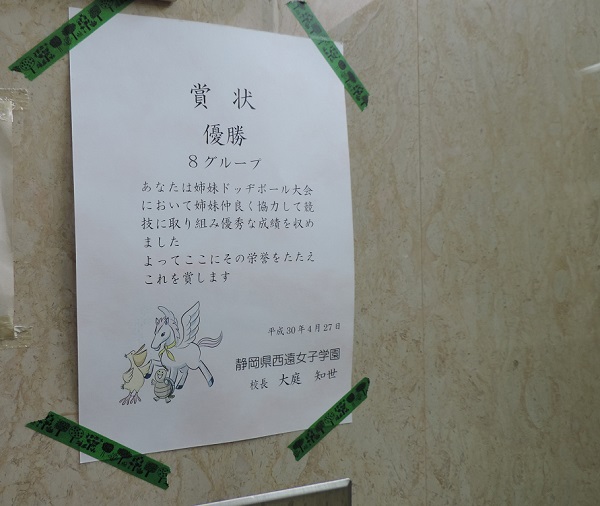 賞状
優勝
8グループ
あなたは姉妹ドッヂボール大会
において姉妹仲良く協力して競
技に取り組み優秀な成績を収め
ました
よってここにその栄誉をたたえ
これを賞します
平成30年4月27日
静岡県西遠女子学園
校長 大庭 知世